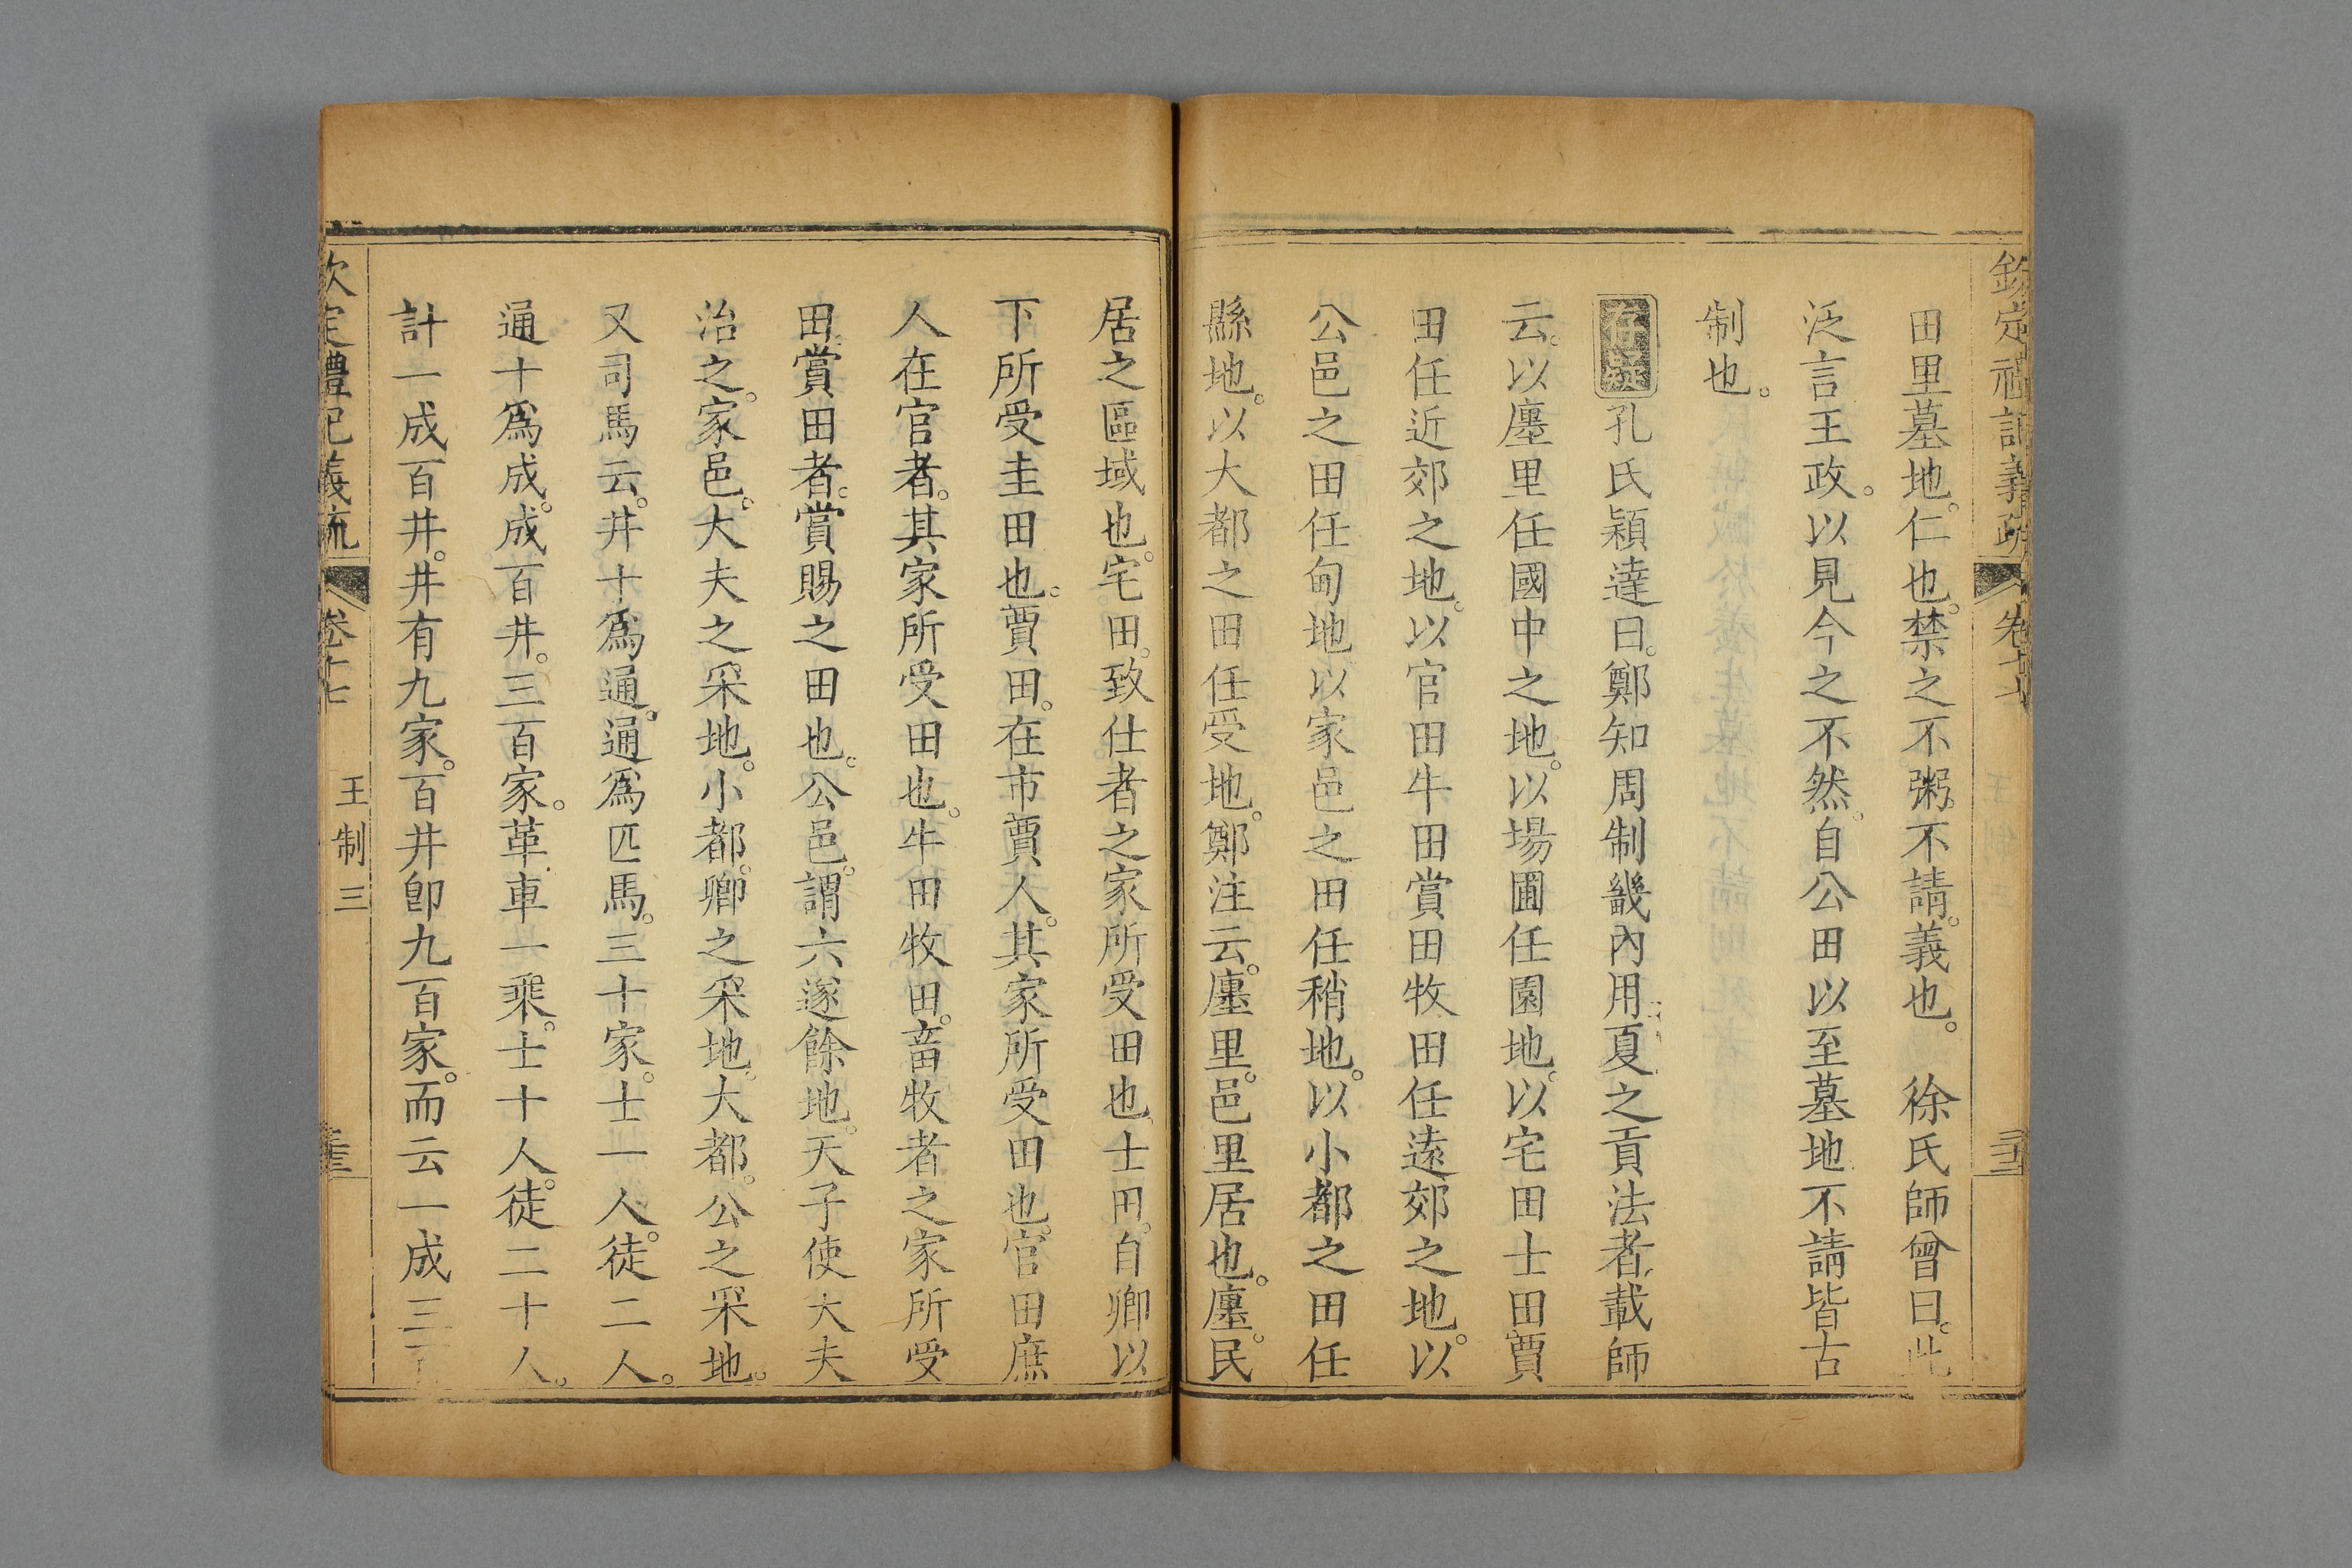 欽定禮記義疏 卷十七
田里墓地。仁也。禁之不粥。不請。義也。 徐氏師曾曰。此
泛言王政。以見今之不然。自公田以至墓地不請皆古
制也。
存疑 孔氏穎達曰。鄭知周制畿內用夏之貢法者。載師
云。以廛里任國中之地。以場圃任園地。以宅田士田賈
田任近郊之地。以官田牛田賞田牧田任遠郊之地。以
公邑之田任甸地以家邑之田任稍地。以小都之田任
縣地。以大都之田任受地。鄭注云。廛里。邑里居也。廛。民
居之區域也。宅田。致仕者之家所受田也。士田。自卿以
下所受圭田也。賈田。在市賈人。其家所受田也。官田庶
人在官者。其家所受田也。牛田牧田。畜牧者之家所受
田。賞田者。賞賜之田也。公邑。謂六遂餘地。天子使大夫
治之。家邑。大夫之采地。小都。卿之采地。大都。公之采地。
又司馬云。井十爲通。通爲匹馬。三十家。士一人。徒二人。
通十爲成。成百井。三百家。革車一乘。士十人。徒二十人。
計一成百井。井有九家。百井卽九百家。而云一成三百
欽定禮記義疏 卷十七 王制三